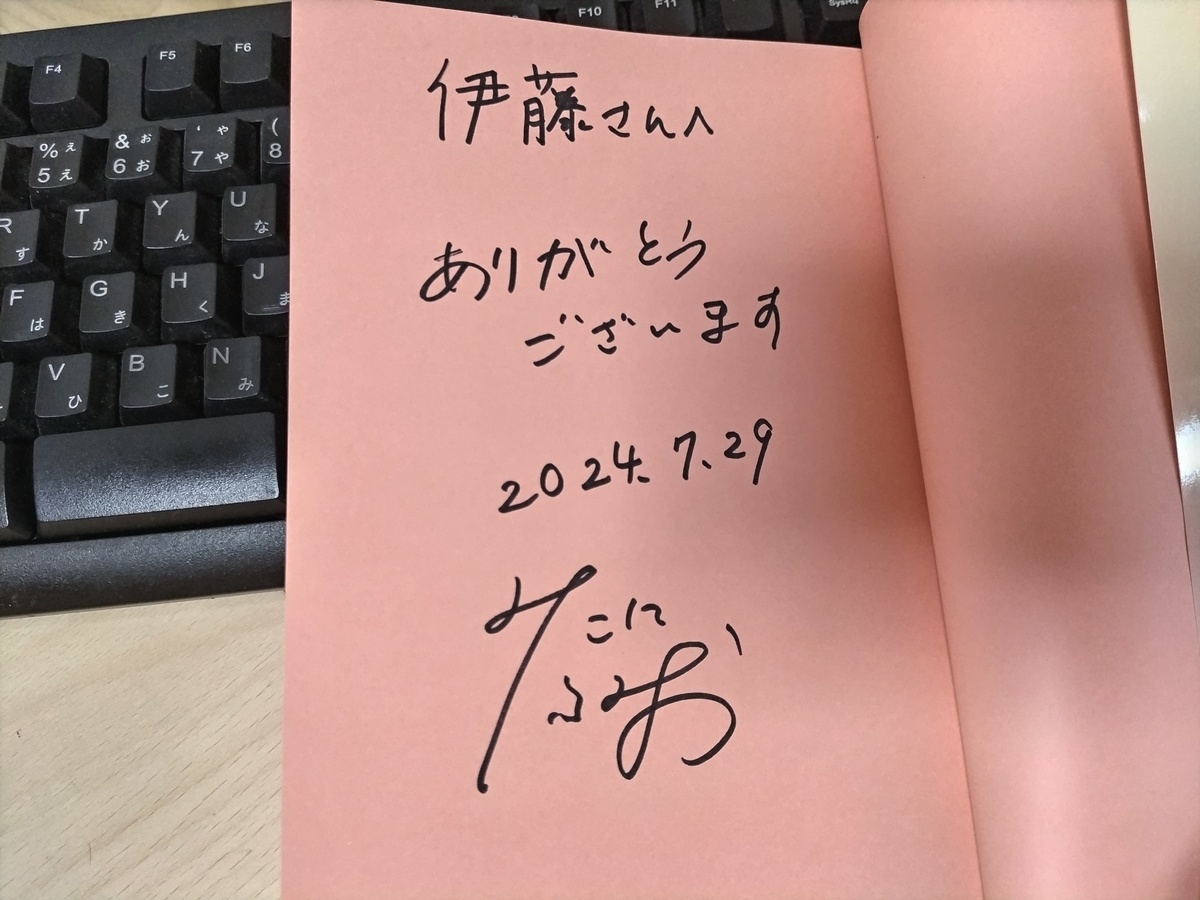 F10 F11 SysRq
F4 F5 F6
% え 5 え & ぉ 6 お ' ゃ 7 や ( 8
R す T か Y ん U な
F は G き H く J ま
V ひ B こ N み
伊藤さんへ
ありがとう
ございます
2024.7.29
みこに
ふみお